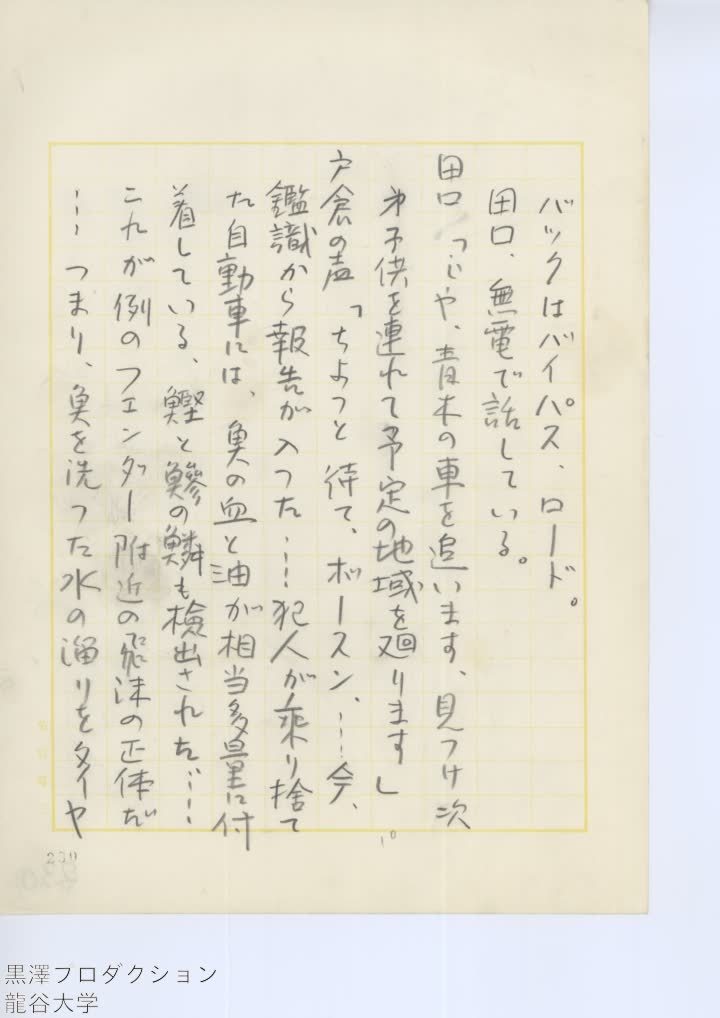 バックはバイパス、ロード。
田口、無電で話している。
田口「じゃ、青木の車を追います、見つけ次
第子供を連れて予定の地域を廻ります」
戸倉の声「ちょっと待て、ボースン、……今、
鑑識から報告が入った……犯人が乗り捨て
た自動車には、魚の血と油が相当多量に付
着している、鰹と鯵の鱗も検出された……
これが例のフェンダー附近の飛沫の正体だ
……つまり、魚を洗った水の溜りをタイヤ
10
230
黒澤プロダクション
龍谷大学